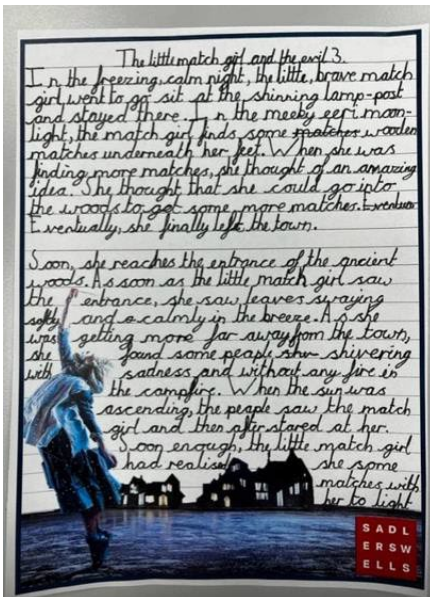 The little match girl and the evil 3.
In the freezing, calm night, the little, brave match
girl went to go sit at the shinning lamp-post
and stayed there. In the meeky eeri moon-
light, the match girl finds some matches wooden
matches underneath her feet. When she was
finding more matches, she thought of an amazing
idea. She thought that she could go into
the woods to get some more matches. Eventuer
Eventually, she finally left the town.
Soon, she reaches the entrance of the ancient
woods. As soon as the little match girl saw
the entrance, she saw leaves swaying
softly and a calmly in the breeze. As she
was getting more far away from the town,
she found some people shiv shivering
with sadness and without any fire in
the campfire. When the sun was
ascending, the people saw the match
girl and then after stared at her.
Soon enough, the little match girl
had realised she some
matches with
her to light
SADL
ERSW
ELLS